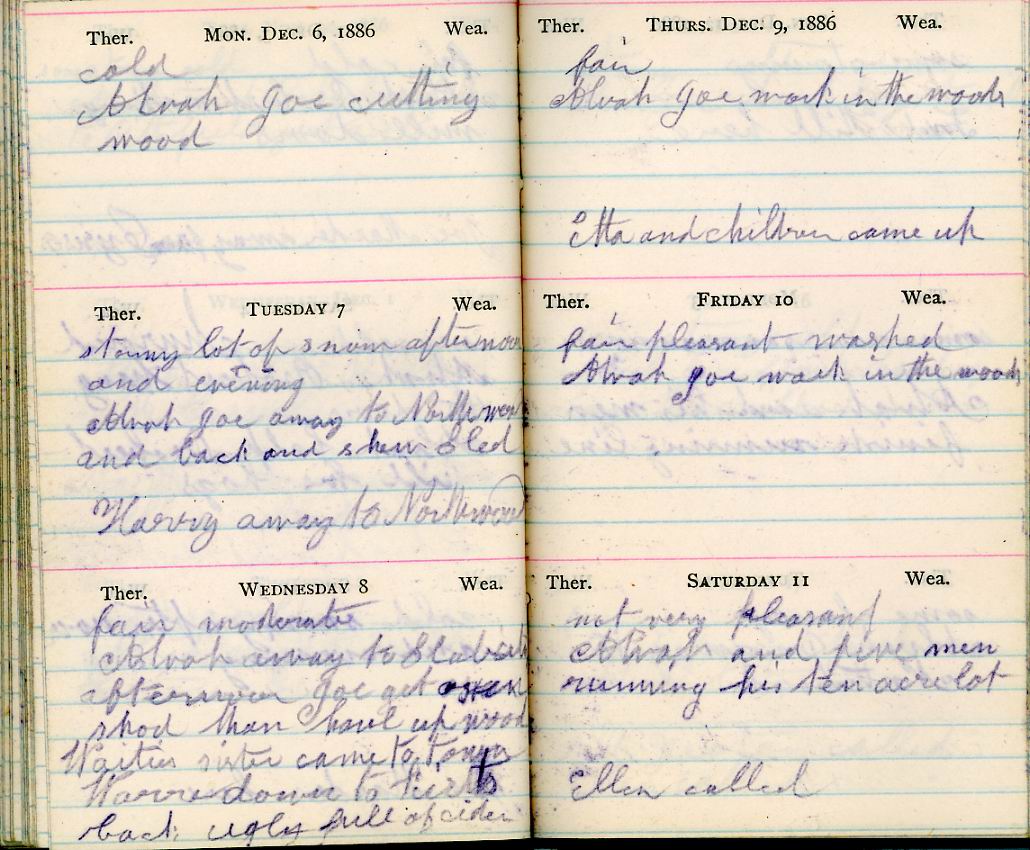 Ther. MON. DEC. 6, 1886 Wea.
cold
Alvah Joe cutting
wood
Ther. TUESDAY 7 Wea.
stormy lot of snow afternoon
and evening
Alvah Joe away to Northwood
and back and shew Sled
Harvy away to Northwood
Ther. WEDNESDAY 8 Wea.
fair moderate
Alvah away to
afternoon Joe get oxen
shod than haul up wood
sister came to town
down to
back ugly full of cider
Ther. THURS. DEC. 9, 1886 Wea.
fair
Alvah Joe work in the woods
Etta and children came up
Ther. FRIDAY 10 Wea.
fair pleasant washed
Alvah Joe work in the woods
Ther. SATURDAY 11 Wea.
not very pleasant
Alvah and five men
running his ten acre lot
Ellen called